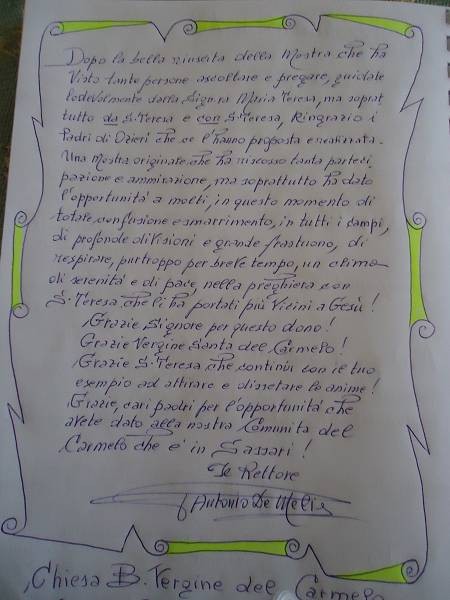 Dopo la bella riuscita della Mostra che ha
visto tante persone ascoltare e pregare, guidate
lodevolmente dalla Sign.ra Maria Teresa, ma soprat
tutto da S. Teresa e con S. Teresa, Ringrazio i
Padri di Ozieri che ce l'hanno proposta e realizzata.
Una Mostra originale, che ha riscosso tanta parteci
pazione e ammirazione, ma soprattutto ha dato
l'opportunità a molti, in questo momento di
totale confusione e smarrimento, in tutti i campi,
di profonde divisioni e grande frastuono, di
respirare, purtroppo per breve tempo, un clima
di serenità e di pace, nella preghiera con
S. Teresa, che li ha portati più vicini a Gesù!
Grazie Signore per questo dono!
Grazie Vergine Santa del Carmelo!
Grazie S. Teresa, che continui con il tuo
esempio ad attirare e dissetare le anime!
Grazie, cari padri per l'opportunità che
avete dato alla nostra Comunità del
Carmelo che è in Sassari!
Il Rettore
Antonio De Melis
Chiesa B. Vergine del Carmelo